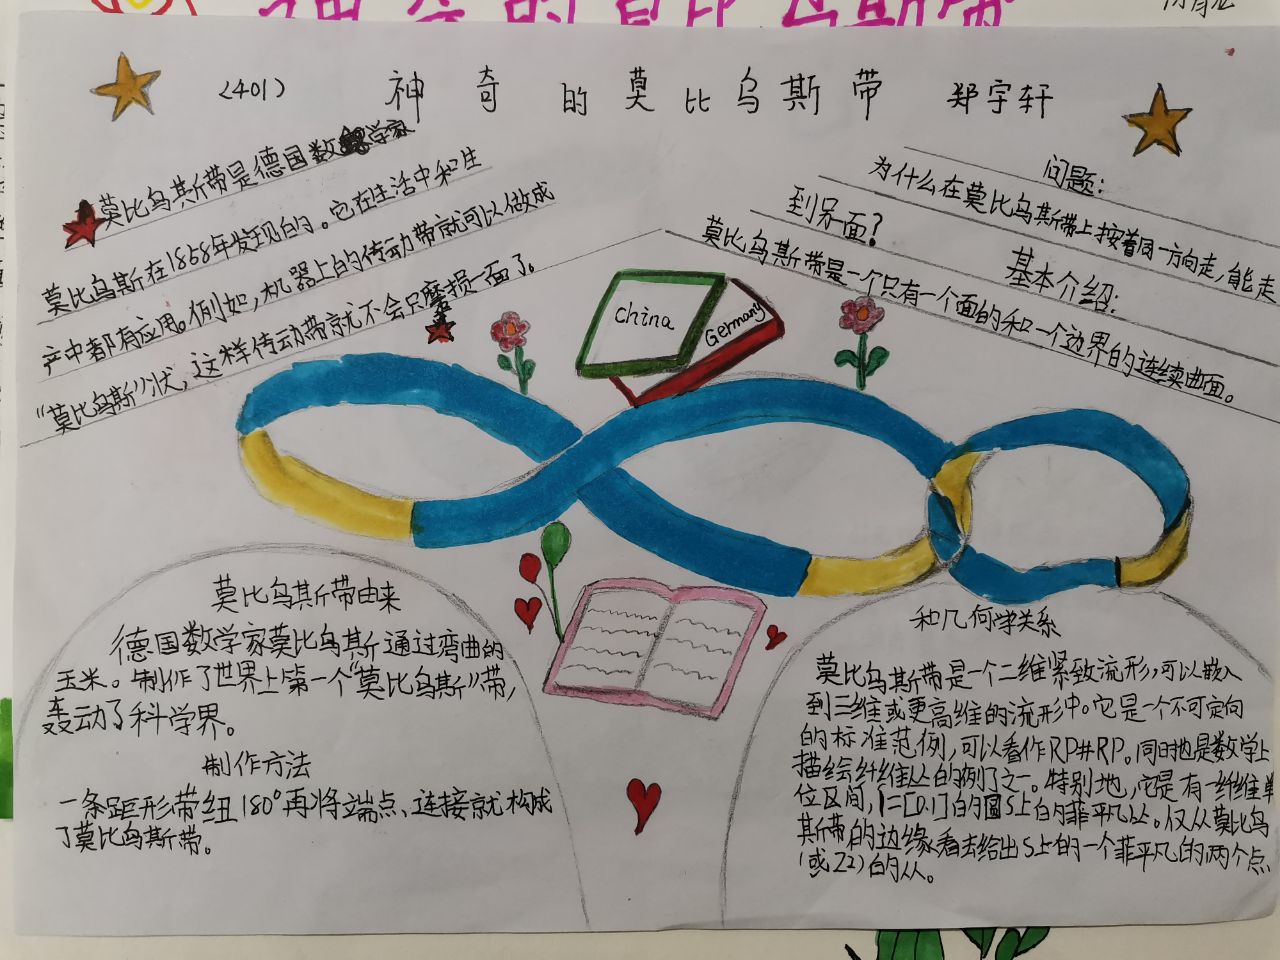 神奇的莫比乌斯带
(401) 神奇的莫比乌斯带 郑宇轩
莫比乌斯带是德国数学家
莫比乌斯在1858年发现的。它在生活中和生
产中都有应用。例如，机器上的传动带就可以做成
“莫比乌斯”状，这样传动带就不会只磨损一面了。
问题：
为什么在莫比乌斯带上按着同一方向走，能走
到另面？
基本介绍：
莫比乌斯带是一个只有一个面的和一个边界的连续曲面。
china
Germany
莫比乌斯带由来
德国数学家莫比乌斯通过弯曲的
玉米。制作了世界上第一个“莫比乌斯”带，
轰动了科学界。
制作方法
一条距形带纽180°再将端点、连接就构成
了莫比乌斯带。
和几何学关系
莫比乌斯带是一个二维紧致流形，可以嵌入
到三维或更高维的流形中。它是一个不可定向
的标准范例，可以看作RP#RP。同时也是数学上
描绘纤维丛的例了之一。特别地，它是有一纤维单
位区间，I=[0.1]的圆S上的菲平凡丛。仅从莫比乌
斯带的边缘看去给出S上的一个菲平凡的两个点
(或Z2)的从。